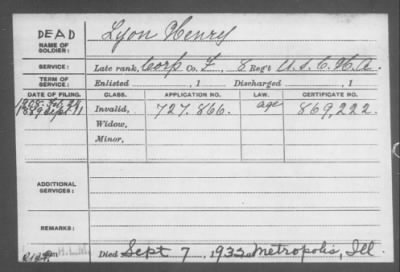 DEAD
NAME OF SOLDIER: Lyon Henry
SERVICE: Late rank, Corp Co. F, 8 Reg't U.S.C.H.A.
TERM OF SERVICE: Enlisted , 1 Discharged , 1
DATE OF FILING. CLASS. APPLICATION NO. LAW. CERTIFICATE NO.
1889 Sept 11 Invalid, 727.866. age 869,222.
Widow,
Minor,
ADDITIONAL SERVICES:
REMARKS:
H.L.M.
Died Sept 7, 1933 Metropolis, Ill.